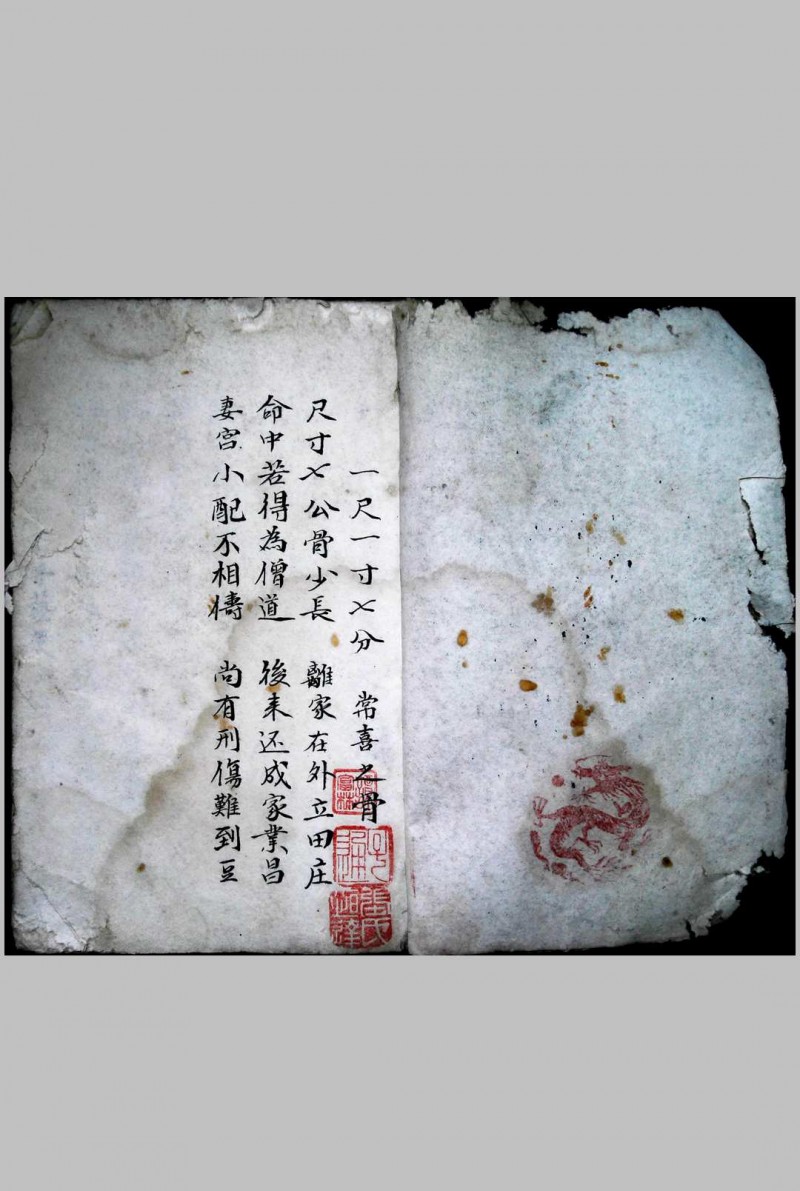 一尺一寸七分 常喜之骨
尺寸七公骨少長 離家在外立田庄
命中若得為僧道 後来还成家業昌
妻宮小配不相 尚有刑傷難到豆
張氏